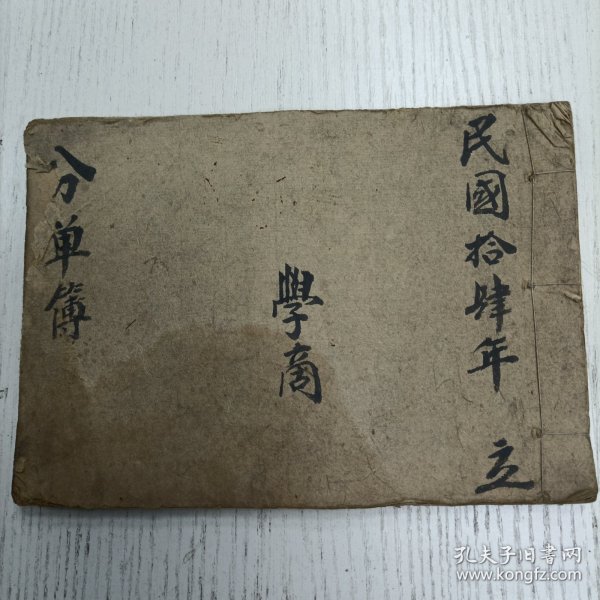 民國拾肆年 立
學商
分单簿
孔夫子旧书网
www.kongfz.com